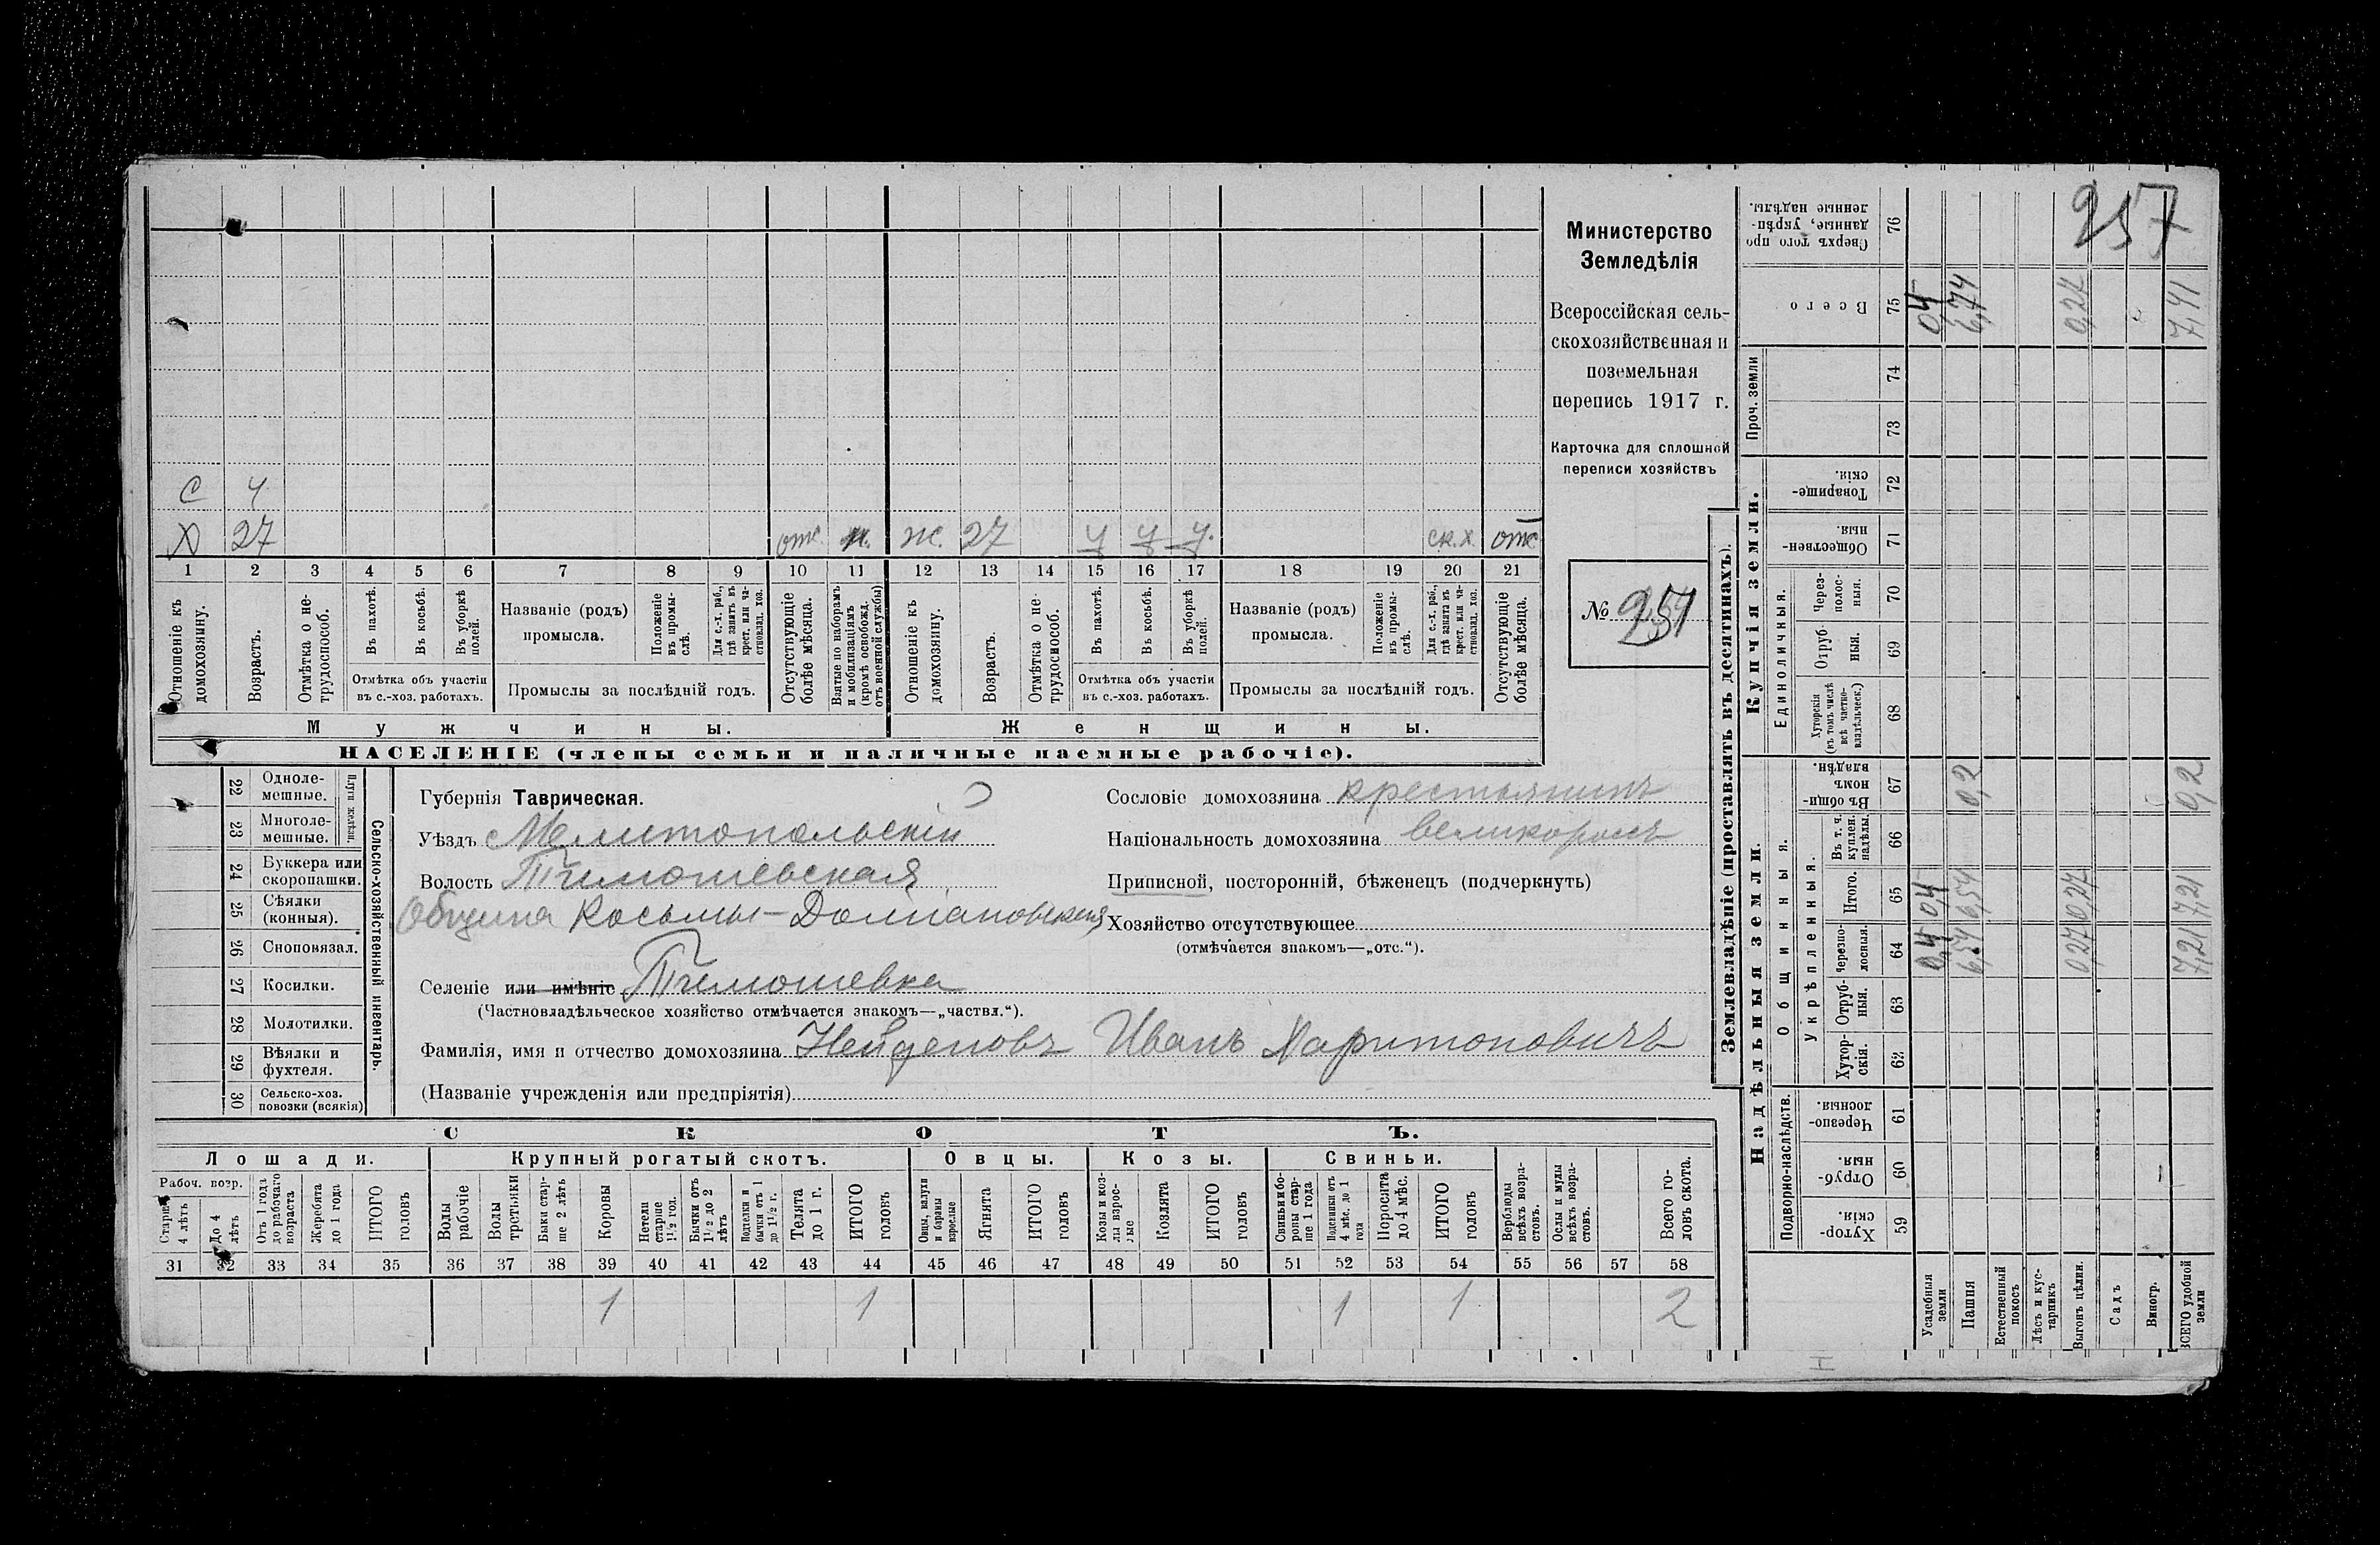 257
С 4
Х 27 отс. н. ж. 27 у у у. ск.х. отс
1 2 3 4 5 6 7 8 9 10 11 12 13 14 15 16 17 18 19 20 21
Отношеніе къ домохозяину.
Возрастъ.
Отмѣтка о не-
трудоспособ.
Въ пахотѣ.
Въ косьбѣ.
Въ уборкѣ полей.
Отмѣтка объ участіи
въ с.-хоз. работахъ.
Названіе (родъ)
промысла.
Положеніе
въ промы-
слѣ.
Для с.-х. раб.,
гдѣ занятъ въ
крест. или ча-
стновлад. хоз.
Промыслы за послѣдній годъ.
Отсутствующіе
болѣе мѣсяца.
Взятые по наборамъ
и мобилизаціямъ
(кромѣ освобожд.
отъ военной службы)
Отношеніе къ
домохозяину.
Возрастъ.
Отмѣтка о не-
трудоспособ.
Въ пахотѣ.
Въ косьбѣ.
Въ уборкѣ
полей.
Отмѣтка объ участіи
въ с.-хоз. работахъ.
Названіе (родъ)
промысла.
Положеніе
въ промы-
слѣ.
Для с.-х. раб.,
гдѣ занята въ
крест. или ча-
стновлад. хоз.
Промыслы за послѣдній годъ.
Отсутствующіе
болѣе мѣсяца.
Мужчины.
Женщины.
НАСЕЛЕНІЕ (члены семьи и наличные наемные рабочіе).
Министерство
Земледѣлія
Всероссійская сель-
скохозяйственная и
поземельная
перепись 1917 г.
Карточка для сплошной
переписи хозяйствъ
№ 257
22 Одноле-
мешные.
23 Многоле-
мешные.
Плуги желѣзн.
24 Буккера или
скоропашки.
25 Сѣялки
(конныя).
26 Сноповязал.
27 Косилки.
28 Молотилки.
29 Вѣялки и
фухтеля.
30 Сельско-хоз.
повозки (всякія)
Сельско-хозяйственный инвентарь.
Губернія Таврическая.
Уѣздъ Мелитопольскій
Волость Тимошевская
Община Косьмы-Даміановская
Селеніе или имѣніе Тимошевка
(Частновладѣльческое хозяйство отмѣчается знакомъ—„частвл.“).
Фамилія, имя и отчество домохозяина Нейденовъ Иванъ Харитоновичъ
(Названіе учрежденія или предпріятія)
Сословіе домохозяина крестьянинъ
Національность домохозяина великороссъ
Приписной, посторонній, бѣженецъ (подчеркнуть)
Хозяйство отсутствующее
(отмѣчается знакомъ—„отс.“).
СКОТЪ.
Лошади. Крупный рогатый скотъ. Овцы. Козы. Свиньи.
Рабоч. возр.
Старше
4 лѣтъ
До 4
лѣтъ
Отъ 1 года
до рабочаго
возраста
Жеребята
до 1 года
ИТОГО
головъ
Волы
рабочіе
Волы
третьяки
Быки стар-
ше 2 лѣтъ
Коровы
Нетели
старше
1½ год.
Бычки отъ
1½ до 2
лѣтъ
Подтелки и
бычки отъ 1
до 1½ г.
Телята
до 1 г.
ИТОГО
головъ
Овцы, валухи
и бараны
взрослые
Ягнята
ИТОГО
головъ
Козы и коз-
лы взрос-
лые
Козлята
ИТОГО
головъ
Свиньи и бо-
ровы стар-
ше 1 года
Подсвинки отъ
4 мѣс. до 1
года
Поросята
до 4 мѣс.
ИТОГО
головъ
Верблюды
всѣхъ возра-
стовъ.
Ослы и мулы
всѣхъ возра-
стовъ.
Всего го-
ловъ скота.
31 32 33 34 35 36 37 38 39 40 41 42 43 44 45 46 47 48 49 50 51 52 53 54 55 56 57 58
1 1 1 1 2
Землевладѣніе (проставлять въ десятинахъ).
Надѣльныя земли.
Купчія земли.
Проч. земли
Подворно-наслѣдств.
Общинныя.
Укрѣпленныя.
Единоличныя.
Хутор-
скія. 59
Отруб-
ныя. 60
Черезпо-
лосныя. 61
Хутор-
скія. 62
Отруб-
ныя. 63
Черезпо-
лосныя. 64
Итого. 65
Въ т. ч.
куплен.
надѣлы. 66
Въ общи-
номъ
владѣн. 67
Хуторскія
(въ томъ числѣ
всѣ частно-
владѣльческ.) 68
Отруб-
ныя. 69
Через-
полос-
ныя. 70
Обществен-
ныя. 71
Товарище-
скія. 72
73
74
Всего 75
Сверхъ того про-
данные, укрѣп-
ленные надѣлы. 76
Усадебныя
земли 0,4 0,4 0,4
Пашня 6,54 6,54 0,2 6,74
Естественный
покосъ
Лѣсъ и кус-
тарникъ
Выгонъ цѣлин. 0,27 0,27 0,27
Садъ
Виногр.
ВСЕГО удобной
земли 7,21 7,21 0,2 7,41
I